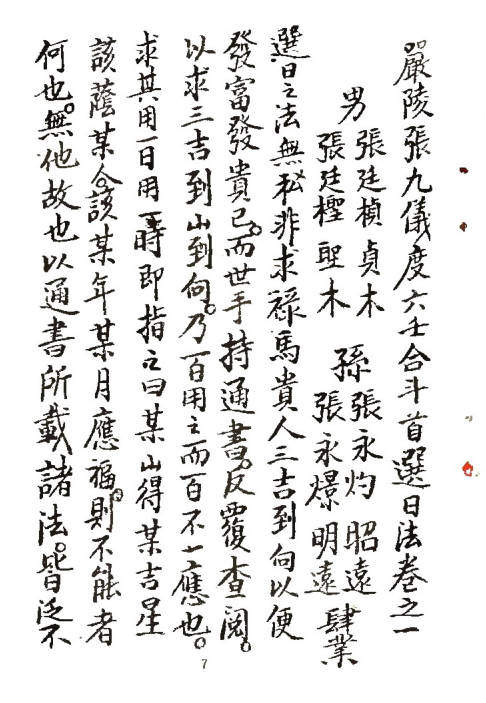 嚴陵張九儀度六壬合斗首選日法卷之一
男 張廷楨貞木 孫張永灼昭遠
張廷檉聖木 張永爆明遠肆業
選日之法無私非求祿馬貴人三吉到向以便
發富發貴已。而世手持通書。反覆查閱。
以求三吉到山到向。乃百用之而百不一應也。
求其用一日用一時即指之曰某山得某吉星
該蔭某命該某年某月應福。則不能者
何也。無他故也以通書所載諸法。皆泛不
7